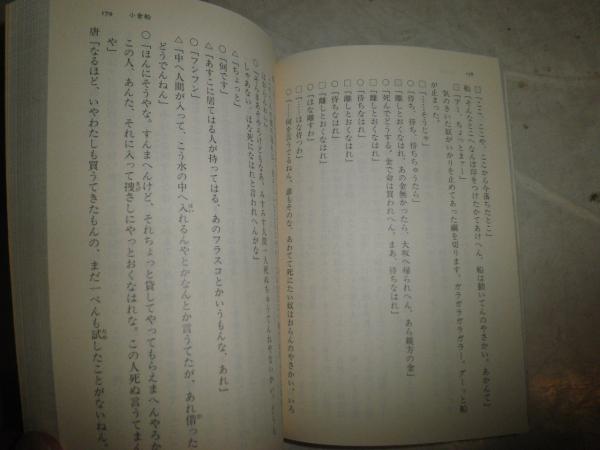 158
□「ここ、ここや、ここから今落ちたとこ」
船「そんなとこへなんぼ印をつけたかてあけへん、船は動いてんのやさかい。あかんて」
□「アー、ちょっとまァー」
気のきいた奴がいかりを止めてあった綱を切ります。ガラガラガラガラー。グーーッと船
が止まった。
□「……そうじゃ」
○「待ち、待ち、待ちちゅうたら」
□「離しとおくなはれ、あの金無かったら、大坂へ帰られへん、あら親方の金」
○「死んでどうする。金で命は買われへん。まあ、待ちなはれ」
□「離しとおくなはれ」
○「待ちなはれ」
□「離しとおくなはれ」
○「待ちなはれ」
□「離しとおくなはれ」
○「はな離すわ」
□「……はな待つわ」
○「……何を言うてるねん。誰もそのな、あわてて死にたい奴はおらんのやさかい。いろ
179 小倉船
しゃあない。はな死になはれと言われへんがな」
△「ちょっと」
○「何です」
△「あすこに居てはる人が持ってはる、あのフラスコとかいうもんな、あれ」
○「フンフン」
△「中へ人間が入って、こう水の中へ入れるんやとかなんとか言うてたが、あれ借った
どうでんねん」
○「ほんにそうやな。すんまへんけど、それちょっと貸してやってもらえまへんやろか
この人、あんた、それに入って捜さしにやっとおくなはれな。この人死ぬ言うてま
や」
唐「なるほど、いやわたしも買うてきたもんの、まだ一ぺんも試したことがないねん。